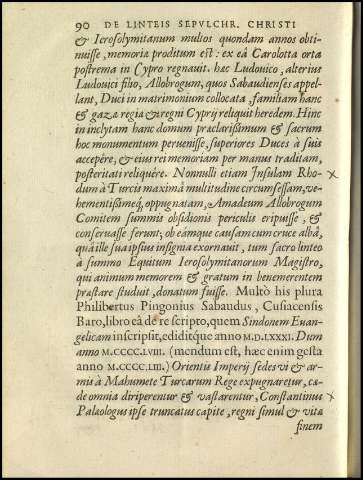 90 DE LINTEIS SEPVLCHR. CHRISTI
& Ierosolymitanum multos quondam annos obti-
nuisse, memoria proditum est: ex ea Carolotta orta
postrema in Cypro regnauit. hæc Ludouico, alterius
Ludouici filio, Allobrogum, quos Sabaudienses appel-
lant, Duci in matrimonium collocata, familiam hanc
& gazæ regiæ & regni Cyprij reliquit heredem. Hinc
in inclytam hanc domum præclarißimum & sacrum
hoc monumentum peruenisse, superiores Duces à suis
accepêre, & eius rei memoriam per manus traditam,
posteritati reliquêre. Nonnulli etiam Insulam Rho-
dum à Turcis maximâ multitudine circumsessam, ve-
hementißimeq́; oppugnatam, Amedeum Allobrogum
Comitem summis obsidionis periculis eripuisse, &
conseruasse ferunt; ob eámque causam cum cruce albâ,
quâ ille sua ipsius insignia exornauit, tum sacro linteo
à summo Equitum Ierosolymitanorum Magistro,
qui animum memorem & gratum in benemerentem
præstare studuit, donatum fuisse. Multò his plura
Philibertus Pingonius Sabaudus, Cusiacensis
Baro, libro eâ de re scripto, quem Sindonem Euan-
gelicam inscripsit, ediditque anno M.D.LXXXI. Dum
anno M.CCCC.LVIII. (mendum est, hæc enim gesta
anno M.CCCC.LIII.) Orientis Imperij sedes vi & ar-
mis à Mahumete Turcarum Rege expugnaretur, cæ-
de omnia diriperentur & vastarentur, Constantinus
Palæologus ipse truncatus capite, regni simul & vitæ
finem